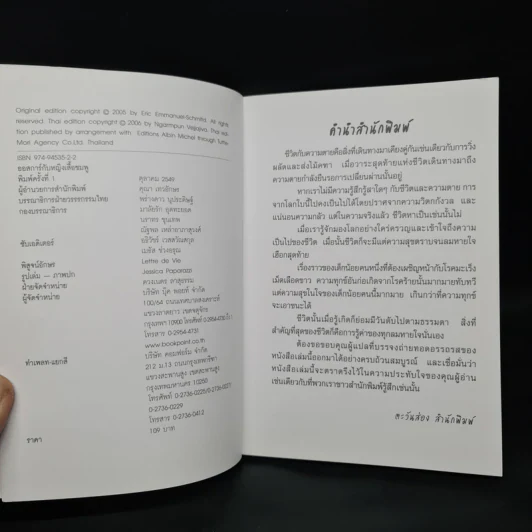 Original edition copyright © 2005 by Eric Emmanuel-Schmitt. All rights
reserved. Thai edition copyright © 2006 by Ngarmpun Vejjajiva. Thai edi-
tion published by arrangement with Editions Albin Michel through Tuttle-
Mori Agency Co.Ltd. Thailand
ISBN 974-94535-2-2
ออสการ์กับหญิงเสื้อชมพู
พิมพ์ครั้งที่ 1 ตุลาคม 2549
ผู้อำนวยการสำนักพิมพ์ คุณา เสวลักษณ์
บรรณาธิการฝ่ายวรรณกรรมไทย พร่างดาว
กองบรรณาธิการ
ซับเอดิเตอร์
พิสูจน์อักษร Lettre de Vie
รูปเล่ม — ภาพปก Jessica Paparazzi
ฝ่ายจัดจำหน่าย
ผู้จัดจำหน่าย บริษัท บุ๊ค พอยท์ จำกัด
100/64
กรุงเทพฯ 10900
โทรสาร 0-2954-4731
www.bookpoint.co.th
ทำเพลท-แยกสี
212 ม.13
แขวงสะพานสูง เขตสะพานสูง
กรุงเทพมหานคร 10250
โทรศัพท์ 0-2736-0227
0-2736-0229
โทรสาร 0-2736-0412
ราคา 159 บาท
คำนำสำนักพิมพ์
ชีวิตกับความตายคือสิ่งที่เดินทางมาเคียงคู่กันเช่นเดียวกับการวิ่ง
ผลัดและส่งไม้คฑา เมื่อวาระสุดท้ายแห่งชีวิตเดินทางมาถึง
ความตายกำลังยืนรอการเปลี่ยนผ่านนั้นอยู่
หากเราไม่มีความรู้สึกรู้สาใดๆ กับชีวิตและความตาย การ
จากโลกใบนี้ไปคงเป็นไปได้โดยปราศจากความวิตกกังวล และ
แน่นอนความกลัว แต่ในความจริงแล้ว ชีวิตหาเป็นเช่นนั้นไม่
เมื่อเรารู้จักมองโลกอย่างใคร่ครวญและเข้าใจถึงความ
เป็นไปของชีวิต เมื่อนั้นชีวิตก็จะมีแต่ความสุขตราบจนลมหายใจ
เฮือกสุดท้าย
เรื่องราวของเด็กน้อยคนหนึ่งที่ต้องเผชิญหน้ากับโรคมะเร็ง
เม็ดเลือดขาว ความทุกข์อันก่อเกิดจากโรคร้ายนั้นมากมายทับทวี
แต่ความสุขในใจของเด็กน้อยคนนี้มากมาย เกินกว่าที่ความทุกข์
จะเอาชนะได้
ชีวิตนั้นเมื่อรู้เกิดก็ย่อมมีวันดับไปตามธรรมดา สิ่งที่
สำคัญที่สุดของชีวิตก็คือการรู้ค่าของทุกลมหายใจนั่นเอง
ต้องขอขอบคุณผู้แปลที่บรรจงถ่ายทอดอรรถรสของ
หนังสือเล่มนี้ออกมาได้อย่างครบถ้วนสมบูรณ์ และเชื่อมั่นว่า
หนังสือเล่มนี้จะตราตรึงไว้ในความประทับใจของคุณผู้อ่าน
เช่นเดียวกับที่พวกเราชาวสำนักพิมพ์รู้สึกเช่นนั้น
ตะวันส่อง สำนักพิมพ์